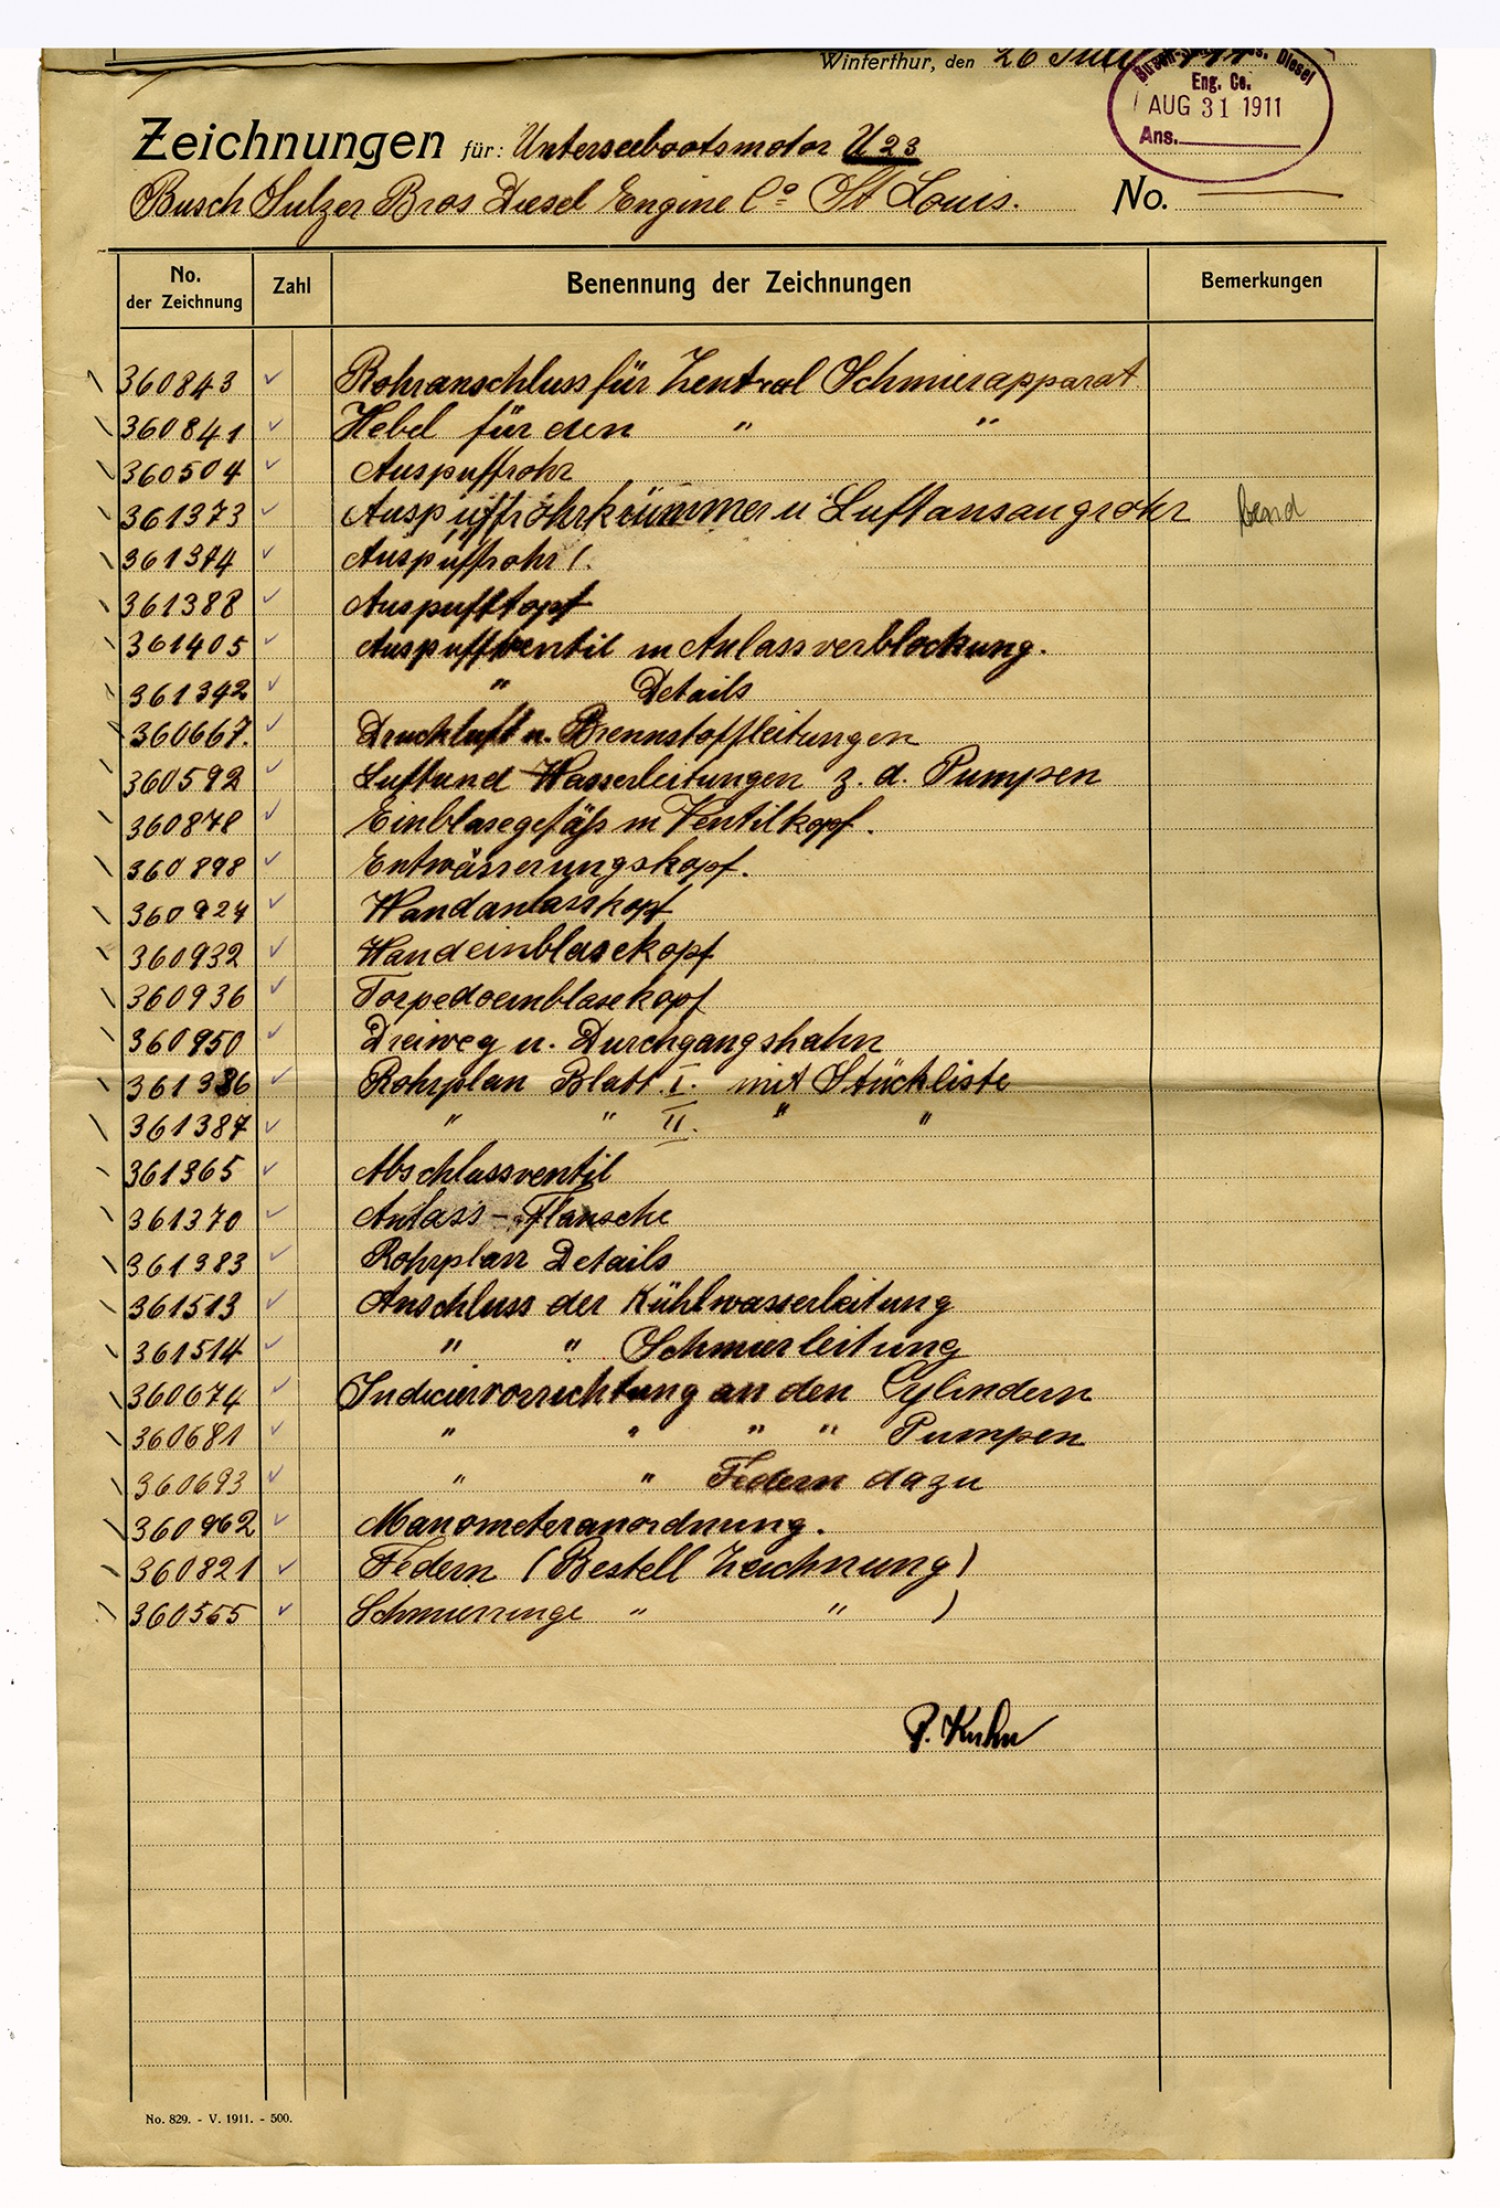 Winterthur, den 26 Juli 1911
Busch-Sulzer Bros. Diesel
Eng. Co.
AUG 31 1911
Ans.
Zeichnungen für: Unterseebootsmotor U 23
Busch Sulzer Bros Diesel Engine Co St Louis. No.
No. der Zeichnung Zahl Benennung der Zeichnungen Bemerkungen
360843 ✓ Rohranschluss für Zentral Schmierapparat
360841 ✓ Hebel für den " "
360504 ✓ Auspuffrohr
361373 ✓ Auspuffrohrkrümmer u Luftansaugrohr bend
361374 ✓ Auspuffrohr 1.
361388 ✓ Auspufftopf
361405 ✓ Auspuffventil m Anlassverblockung.
361342 ✓ " Details
360667. ✓ Druckluft u. Brennstoffleitungen
360592 ✓ Luft und Wasserleitungen z. d. Pumpen
360878 ✓ Einblasegefäss m Ventilkopf.
360898 ✓ Entwässerungskopf.
360924 ✓ Handanlasskopf
360932 ✓ Handeinblasekopf
360936 ✓ Torpedoeinblasekopf
360950 ✓ Dreiweg u. Durchgangshahn
361386 ✓ Rohrplan Blatt I. mit Stückliste
361387 ✓ " " II. " "
361365 ✓ Abschlussventil
361370 ✓ Anlass-Flansche
361383 ✓ Rohrplan Details
361513 ✓ Anschluss der Kühlwasserleitung
361514 ✓ " " Schmierleitung
360674 ✓ Indiciervorrichtung an den Cylindern
360681 ✓ " " " " Pumpen
360693 ✓ " " Federn dazu
360962 ✓ Manometeranordnung.
360821 ✓ Federn (Bestell Zeichnung)
360555 ✓ Schmierringe " " )
P. Kuhn
No. 829. - V. 1911. - 500.